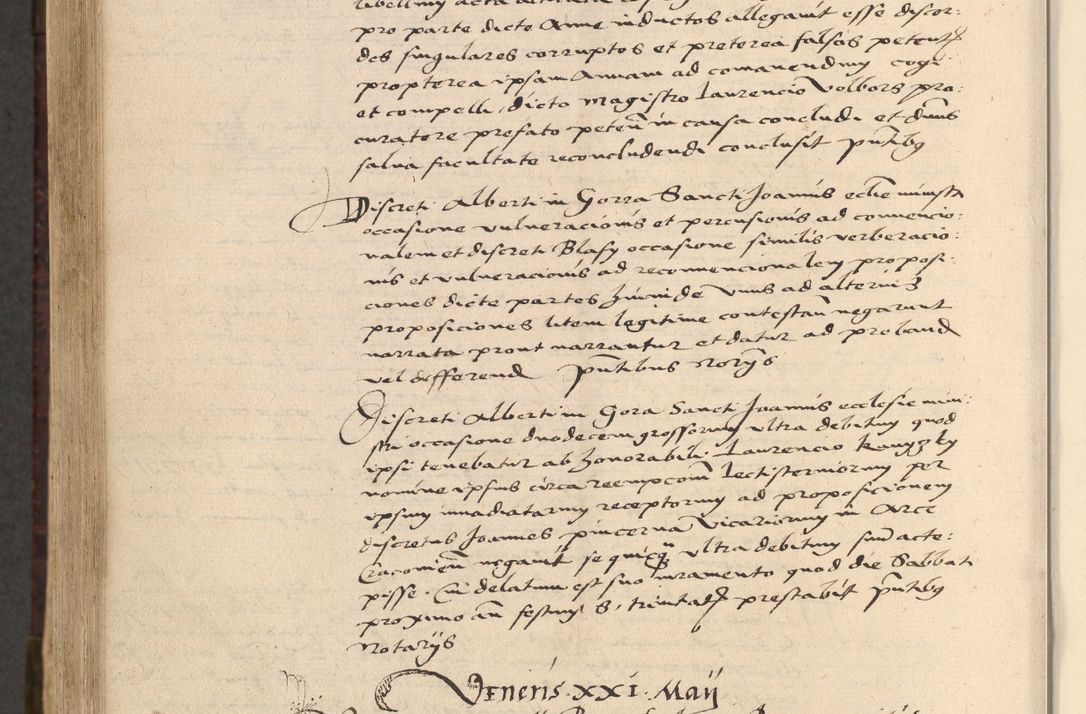 pro parte dicte Anne inductos allegavit esse discor:
des singulares corruptos et preterea falsos petens
propterea ipsam Annam ad comanendum cogi
et compelli, dicto Magistro Laurencio Volbors pro:
curatore prefato peten in causa concludi et dnus
salva facultate reconcludendi conclusit pntibus
Discreti Alberti in Gorra Sancti Joannis ecclie ministri
occasione vulneracionis et percusionis ad convencio:
nalem et discreti Blasy occasione similis verberacio:
nis et vulneracionis ad reconvencionalem proposi:
ciones dicte partes hincinde unus ad alterius
proposiciones litem legitime contestan negarunt
narrata prout narrantur et datur ad proband
vel differend pntibus Notorys
Discreti Alberti in Gora Sancti Joannis ecclesie mini:
stri occasione duodecem grossorum ultra debitum quod
ipsi tenebatur ab honorabili Laurencio
nomine ipsius circa reempcom lectisterniorum per
ipsum receptorum ad proposicionem
discretus Joannes pincerna Vicariorum in Arce
Cracovien negavit se quicquam ultra debitum suum acce:
pisse. Cui delatum est suo iuramento quod die Sabbati
proximo an festum S. trinitatis prestabit pntibus
Notarys
Veneris XXI Maij